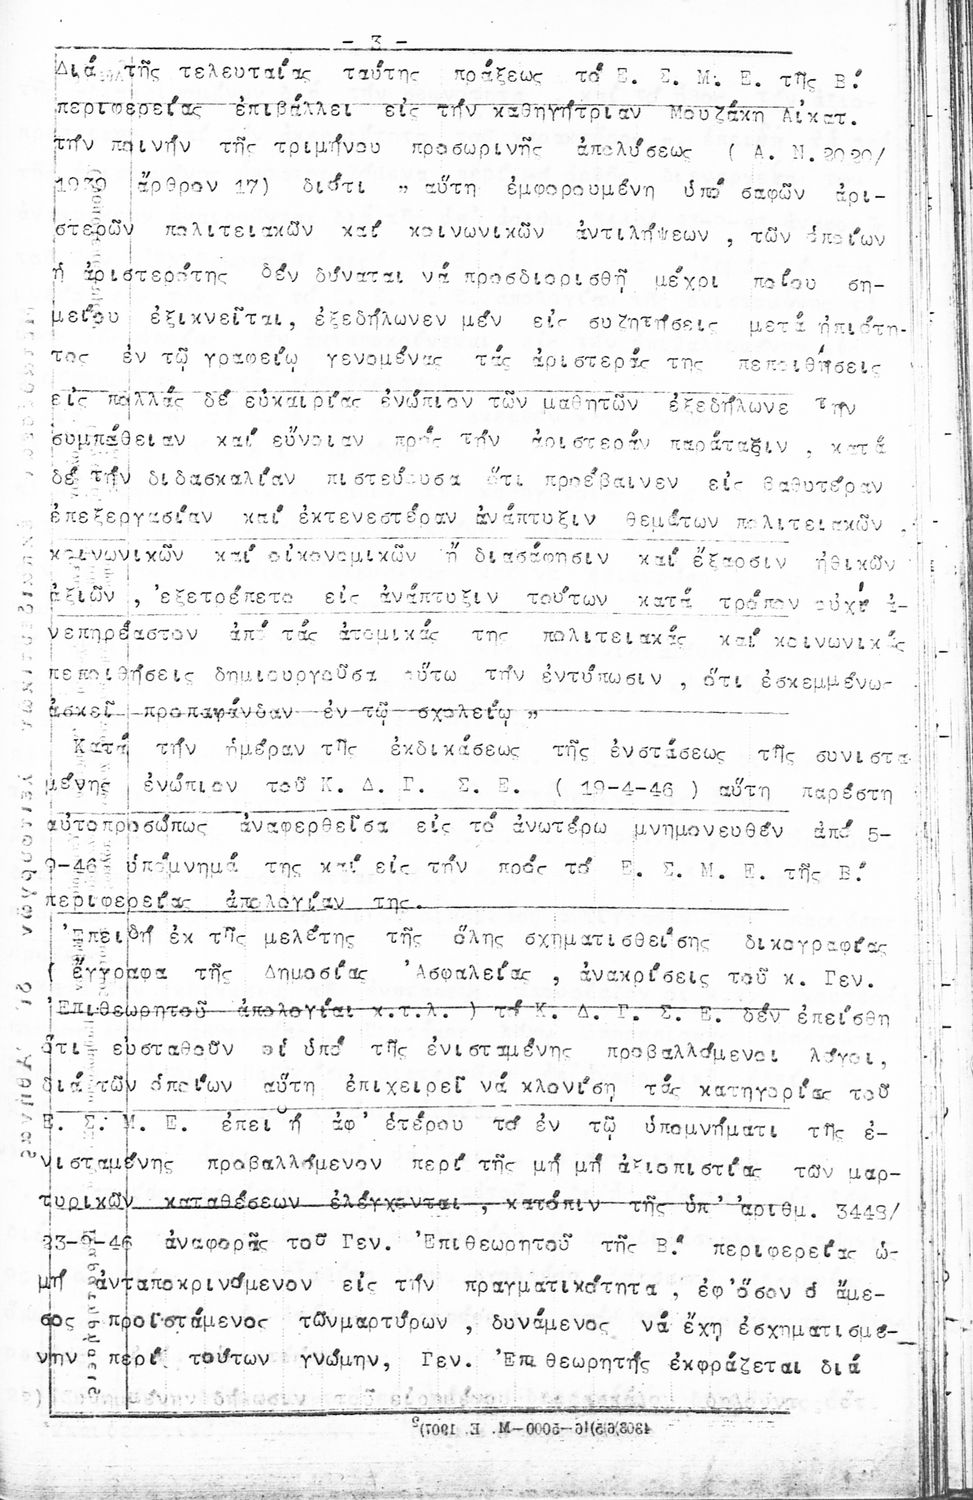 - 3 -
Διά τῆς τελευταίας ταύτης πράξεως τό Ε. Σ. Μ. Ε. τῆς Β.'
περιφερείας ἐπιβάλλει εἰς τήν καθηγήτριαν Μουζάκη Αἰκατ.
τήν ποινήν τῆς τριμήνου προσωρινῆς ἀπολύσεως ( Α. Ν. 2020/
1939 ἄρθρον 17) διότι " αὕτη ἐμφορουμένη ὑπό σαφῶν ἀρι-
στερῶν πολιτειακῶν καί κοινωνικῶν ἀντιλήψεων , τῶν ὁποίων
ἡ ἀριστερότης δέν δύναται νά προσδιορισθῇ μέχρι ποίου ση-
μείου ἐξικνεῖται, ἐξεδήλωνεν μέν εἰς συζητήσεις μετά ἡπιότη-
τος ἐν τῷ γραφείῳ γενομένας τάς ἀριστεράς της πεποιθήσεις
εἰς πολλάς δέ εὐκαιρίας ἐνώπιον τῶν μαθητῶν ἐξεδήλωνε τήν
συμπάθειαν καί εὔνοιαν πρός τήν ἀριστεράν παράταξιν , κατά
δέ τήν διδασκαλίαν πιστεύουσα ὅτι προέβαινεν εἰς βαθυτέραν
ἐπεξεργασίαν καί ἐκτενεστέραν ἀνάπτυξιν θεμάτων πολιτειακῶν ,
κοινωνικῶν καί οἰκονομικῶν ἤ διασάφησιν καί ἔξαρσιν ἠθικῶν
ἀξιῶν , 'εξετρέπετο εἰς ἀνάπτυξιν τούτων κατά τρόπον οὐχί ἀ-
νεπηρέαστον ἀπό τάς ἀτομικάς της πολιτειακάς καί κοινωνικάς
πεποιθήσεις δημιουργοῦσα οὕτω τήν ἐντύπωσιν , ὅτι ἐσκεμμένως
ἀσκεῖ προπαφάνδαν ἐν τῷ σχολείῳ "
Κατά τήν ἡμέραν τῆς ἐκδικάσεως τῆς ἐνστάσεως τῆς συνιστα
μένης ἐνώπιον τοῦ Κ. Δ. Γ. Σ. Ε. ( 19-4-46 ) αὕτη παρέστη
αὐτοπροσώπως ἀναφερθεῖσα εἰς τό ἀνωτέρω μνημονευθέν ἀπό 5-
9-46 ὑπόμνημά της καί εἰς τήν πρός τό Ε. Σ. Μ. Ε. τῆς Β.'
περιφερείας ἀπολογίαν της.
'Επειδή ἐκ τῆς μελέτης τῆς ὅλης σχηματισθείσης δικογραφίας
( ἔγγραφα τῆς Δημοσίας 'Ασφαλείας , ἀνακρίσεις τοῦ κ. Γεν.
'Επιθεωρητοῦ ἀπολογίαι κ.τ.λ. ) τό Κ. Δ. Γ. Σ. Ε. δέν ἐπείσθη
ὅτι ευσταθοῦν οἱ ὑπό τῆς ἐνισταμένης προβαλλόμενοι λόγοι,
διά τῶν ὁποίων αὕτη ἐπιχειρεῖ νά κλονίσῃ τάς κατηγορίας τοῦ
Ε. Σ. Μ. Ε. ἐπει ἤ ἀφ' ἑτέρου τό ἐν τῷ ὑπομνήματι τῆς ἐ-
νισταμένης προβαλλόμενον περί τῆς μή μή ἀξιοπιστίας τῶν μαρ-
τυρικῶν καταθέσεων ἐλέγχονται , κατόπιν τῆς ὑπ' ἀριθμ. 3448/
23-9-46 ἀναφορᾶς τοῦ Γεν. 'Επιθεωρητοῦ τῆς Β.' περιφερείας ὡ-
μή ἀνταποκρινόμενον εἰς τήν πραγματικότητα , ἐφ'ὅσον ὁ ἄμε-
σος προϊστάμενος τῶνμαρτύρων , δυνάμενος νά ἔχῃ ἐσχηματισμέ-
νην περί τούτων γνώμην, Γεν. 'Επι θεωρητής ἐκφράζεται διά